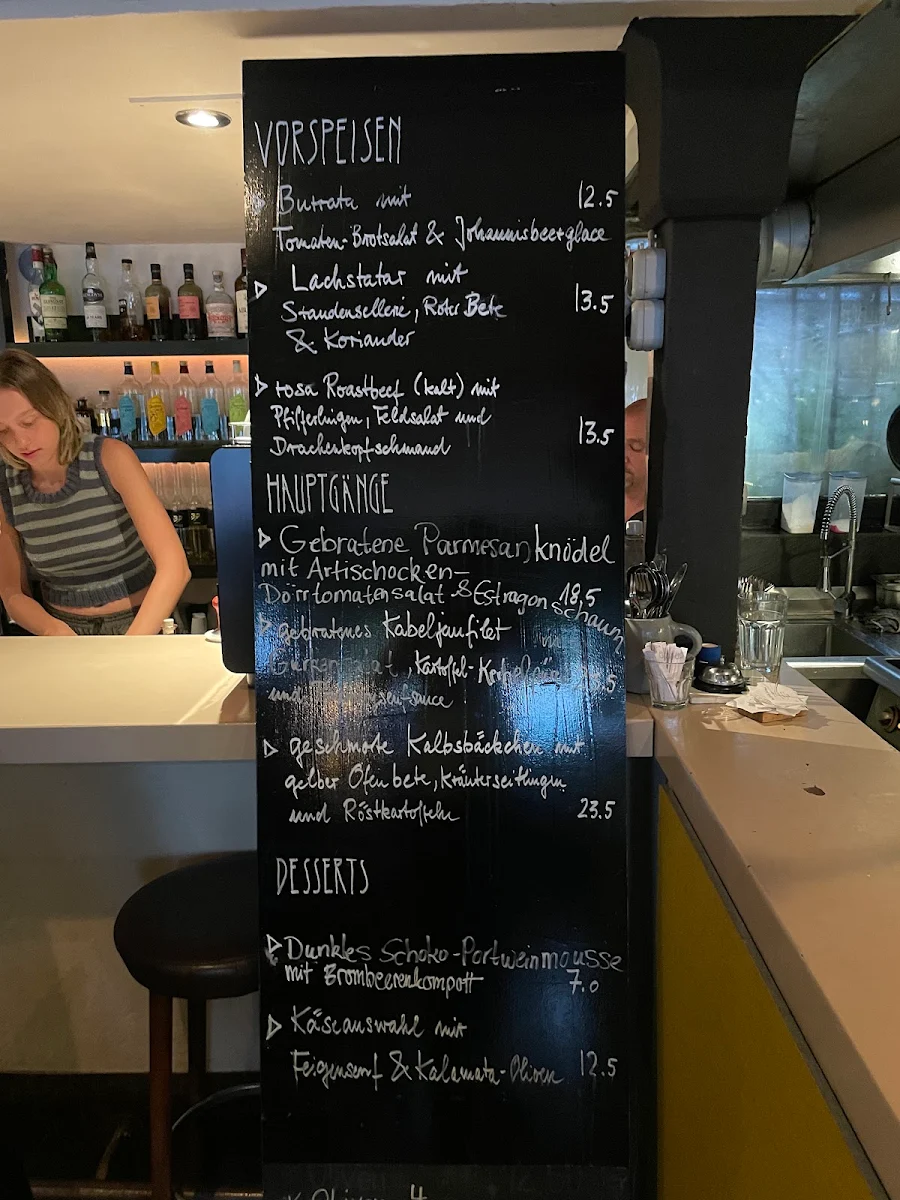 VORSPEISEN
Burrata mit 12.5
Tomaten-Brotsalat & Johannisbeerglace
Lachstatar mit
Staudensellerie, Roter Bete 13.5
& Koriander
rosa Roastbeef (kalt) mit
Pfifferlingen, Feldsalat und
Drachenkopfschmand 13.5
HAUPTGÄNGE
Gebratene Parmesanknödel
mit Artischocken-
Dörrtomatensalat & Estragonschaum 18.5
gebratenes Kabeljaufilet mit
Gurkensalat, Kartoffel-
und
geschmorte Kalbsbäckchen mit
gelber Ofenbete, Kräuterseitlingen
und Röstkartoffeln 23.5
DESSERTS
Dunkles Schoko-Portweinmousse
mit Brombeerenkompott 7.0
Käseauswahl mit
Feigensenf & Kalamata-Oliven 12.5
Oliven 4